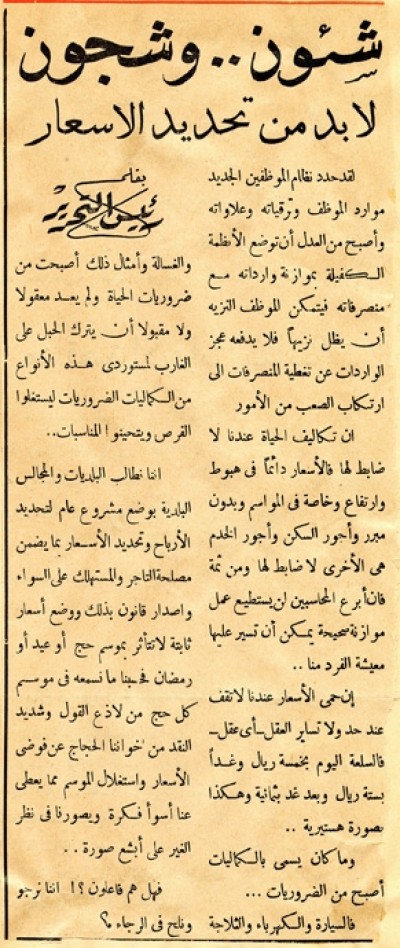 شئون.. وشجون
لابد من تحديد الاسعار
لقد حدد نظام الموظفين الجديد
موارد الموظف وترقياته وعلاواته
وأصبح من العدل أن توضع الأنظمة
الكفيلة بموازنة وارداته مع
منصرفاته فيتمكن الموظف النزيه
أن يظل نزيهاً فلا يدفعه عجز
الواردات عن تغطية المنصرفات الى
ارتكاب الصعب من الأمور
ان تكاليف الحياة عندنا لا
ضابط لها فالأسعار دائماً فى هبوط
وارتفاع وخاصة فى المواسم وبدون
مبرر وأجور السكن وأجور الخدم
هى الأخرى لا ضابط لها ومن ثمة
فان أبرع المحاسبين لن يستطيع عمل
موازنة صحيحة يمكن أن تسير عليها
معيشة الفرد منا ..
إن حمى الأسعار عندنا لا تقف
عند حد ولا تساير العقل ـ أى عقل ـ
فالسلعة اليوم بخمسة ريال وغداً
بستة ريال وبعد غد بثمانية وهكذا
بصورة هستيرية ..
وما كان يسمى بالكماليات
أصبح من الضروريات ...
فالسيارة والكهرباء والثلاجة
بقلم
رئيس التحرير
والغسالة وأمثال ذلك أصبحت من
ضروريات الحياة ولم يعد معقولا
ولا مقبولا أن يترك الحبل على
الغارب لمستوردى هذه الأنواع
من الكماليات الضروريات ليستغلوا
الفرص ويتحينوا المناسبات..
اننا نطالب البلديات والمجالس
البلدية بوضع مشروع عام لتحديد
الأرباح وتحديد الأسعار بما يضمن
مصلحة التاجر والمستهلك على السواء
واصدار قانون بذلك ووضع أسعار
ثابتة لا تتأثر بموسم حج أو عيد أو
رمضان فحسبنا ما نسمعه فى موسم
كل حج من لاذع القول وشديد
النقد من اخواننا الحجاج عن فوضى
الأسعار واستغلال الموسم مما يعطى
عنا أسوأ فكرة ويصورنا فى نظر
الغير على أبشع صورة ..
فهل هم فاعلون ؟! اننا نرجو
ونلح فى الرجاء ؟